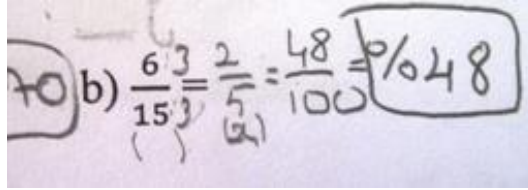 70 b) 6/15 3/3 = 2/5 = 48/100 = %48
( ) (2)